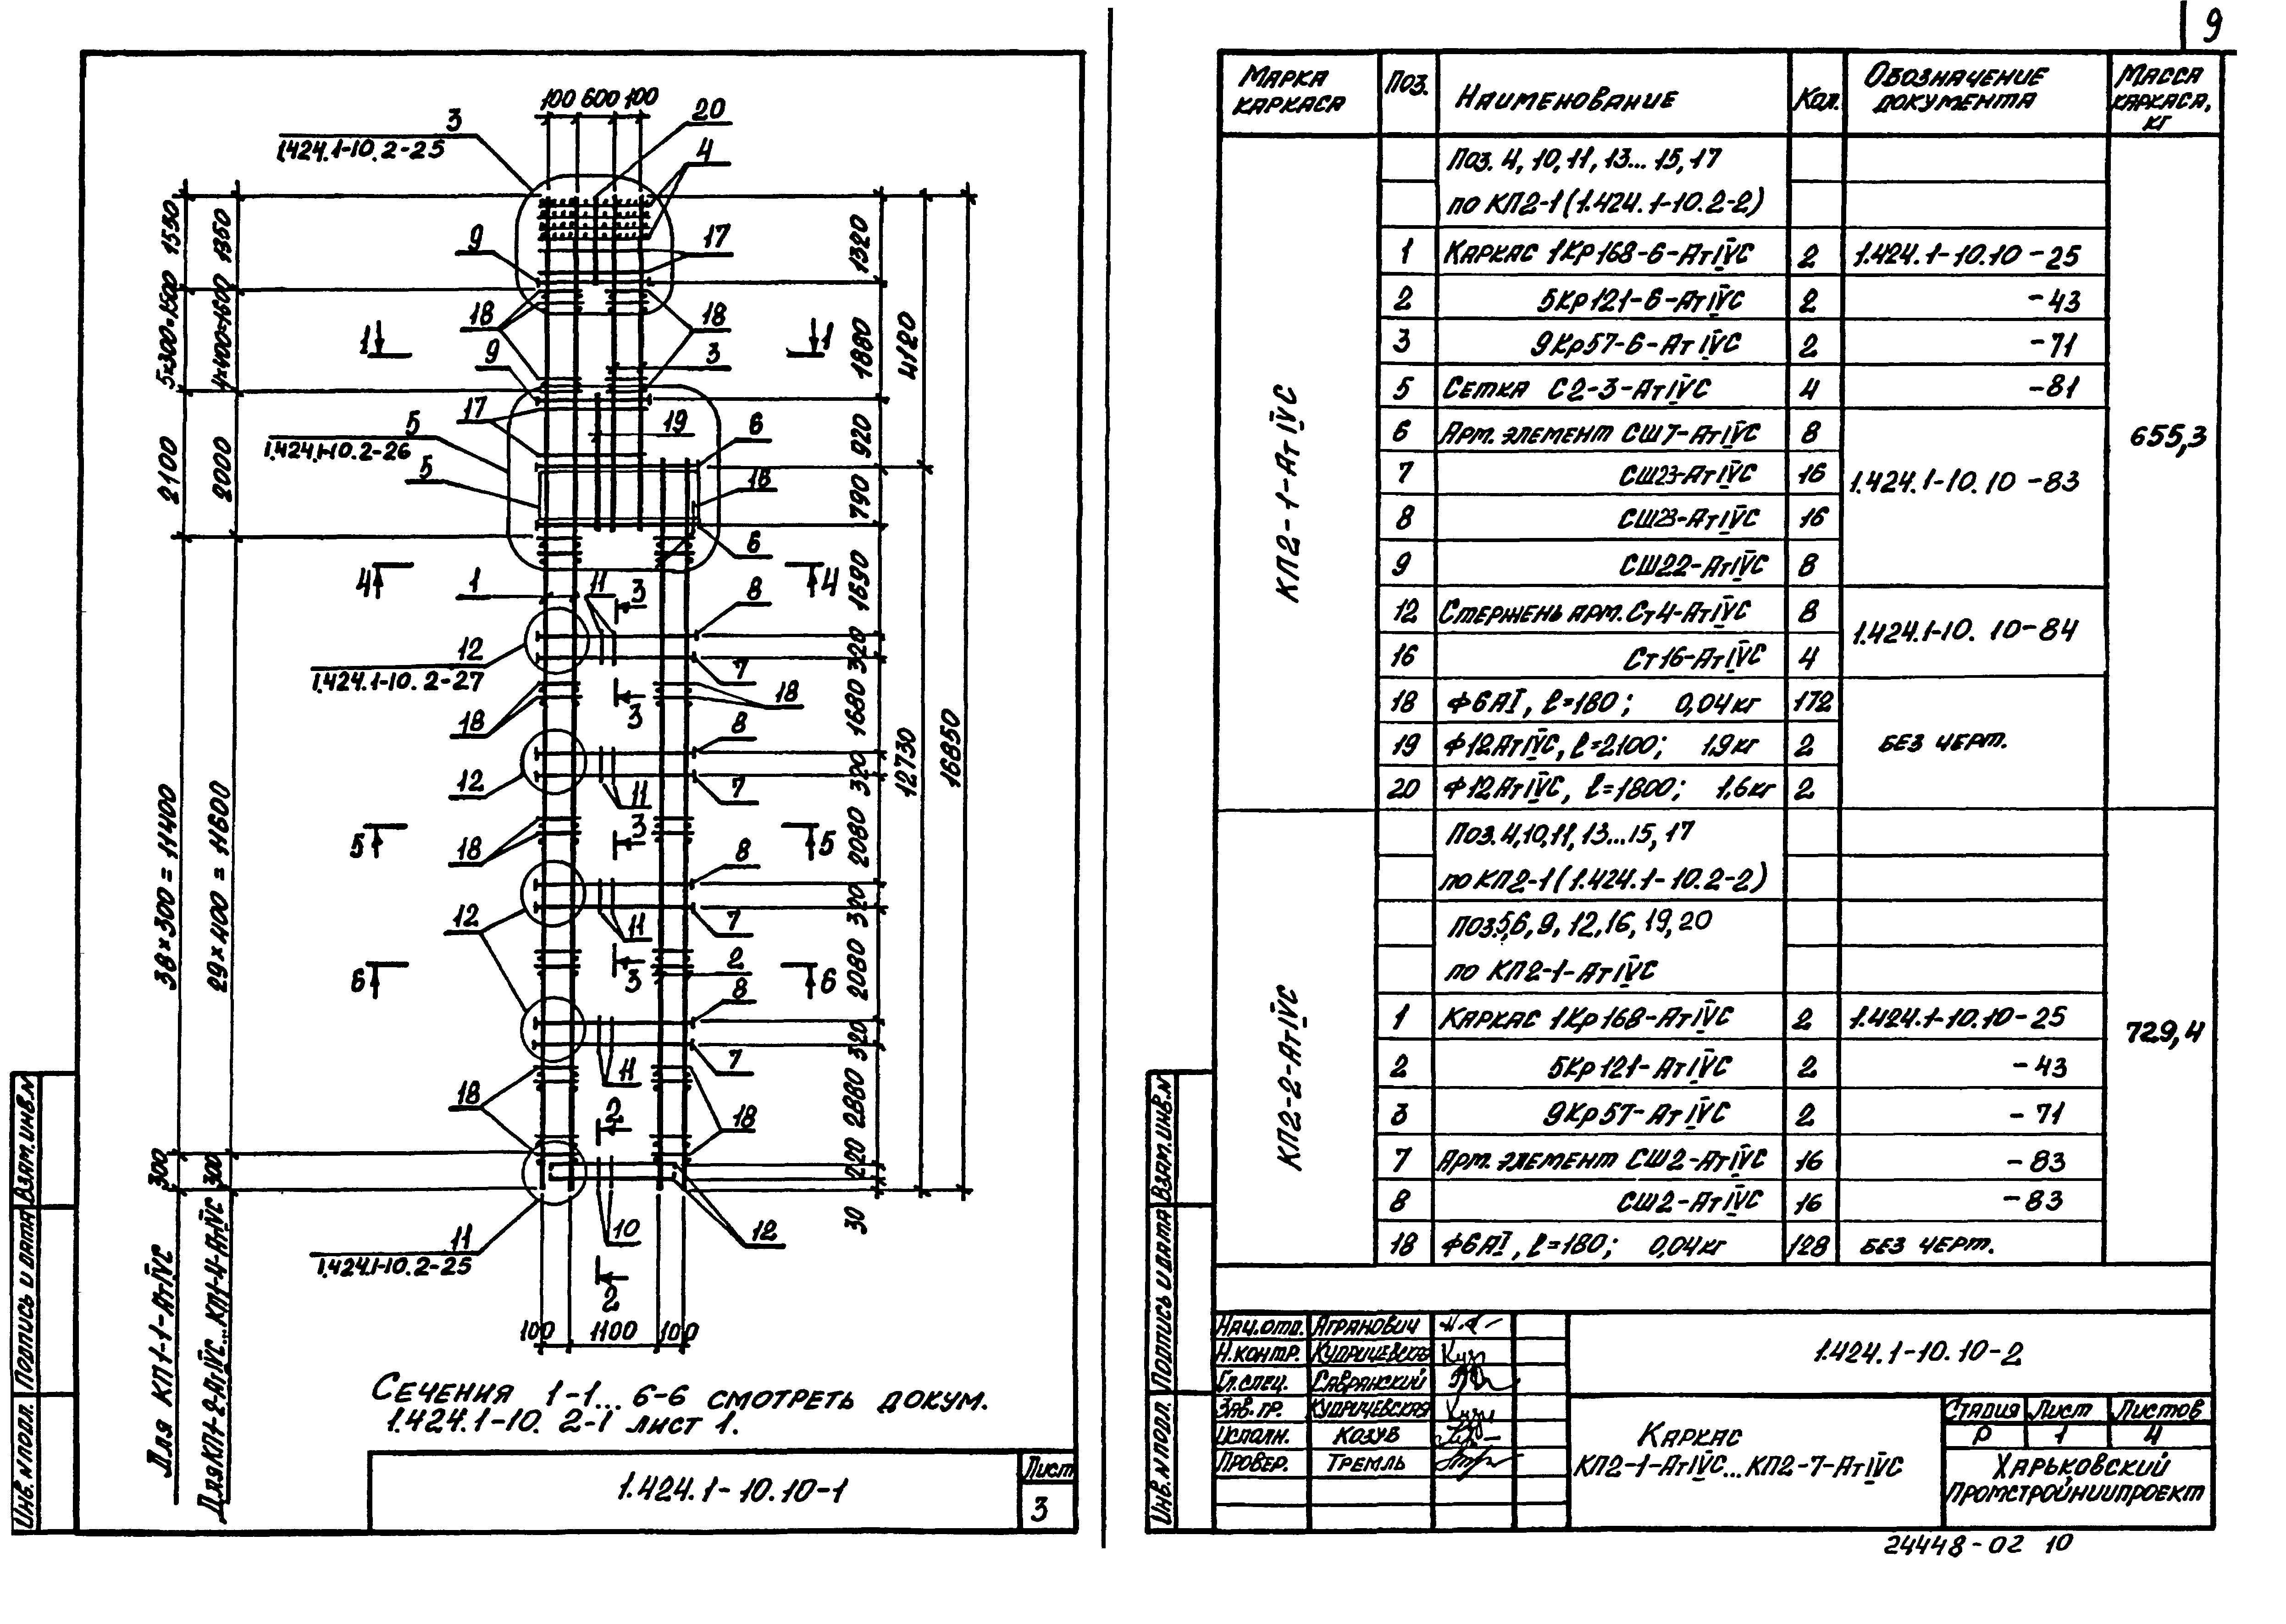 9
100 600 100
3
1.424.1-10.2-25
20
4
9
17
18
18
1
1
9
3
17
19
5
1.424.1-10.2-26
5
6
16
6
4
4
1
11
3
8
12
1.424.1-10.2-27
7
18
3
18
8
12
11
7
5
18
3
5
8
12
11
7
3
2
6
6
8
11
7
18
2
18
10
12
11
1.424.1-10.2-25
2
100 1100 100
1550
5×300=1500
2100
38×300=11400
300
Для КП1-1-АтIVС
1350
4×400=1600
2000
29×400=11600
300
Для КП1-2-АтIVС...КП1-4-АтIVС
1320
1880
920
790
1690
320
1680
320
2080
320
2080
320
2880
220
30
4120
12730
16850
Сечения 1-1... 6-6 смотреть докум.
1.424.1-10. 2-1 лист 1.
1.424.1-10.10-1
Лист
3
Инв.№подл.
Подпись и дата
Взам.инв.№
Марка каркаса Поз. Наименование Кол. Обозначение документа Масса каркаса, кг
КП2-1-АтIVС
Поз. 4, 10, 11, 13... 15, 17
по КП2-1 (1.424.1-10.2-2)
1 Каркас 1Кр168-6-АтIVС 2 1.424.1-10.10-25
2 5Кр121-6-АтIVС 2 -43
3 9Кр57-6-АтIVС 2 -71
5 Сетка С2-3-АтIVС 4 -81
6 Арм. элемент СШ7-АтIVС 8
655,3
7 СШ23-АтIVС 16 1.424.1-10.10-83
8 СШ23-АтIVС 16
9 СШ22-АтIVС 8
12 Стержень арм. Ст4-АтIVС 8 1.424.1-10. 10-84
16 Ст16-АтIVС 4
18 Ф6АI, ℓ=180; 0,04кг 172
19 Ф12АтIVС, ℓ=2100; 1,9кг 2 без черт.
20 Ф12АтIVС, ℓ=1800; 1,6кг 2
КП2-2-АтIVС
Поз. 4,10,11,13...15, 17
по КП2-1 (1.424.1-10.2-2)
Поз.5,6, 9, 12,16, 19, 20
по КП2-1-АтIVС
1 Каркас 1Кр168-АтIVС 2 1.424.1-10.10-25
729,4
2 5Кр121-АтIVС 2 -43
3 9Кр57-АтIVС 2 -71
7 Арм. элемент СШ2-АтIVС 16 -83
8 СШ2-АтIVС 16 -83
18 Ф6АI, ℓ=180; 0,04кг 128 без черт.
Нач.отд. Агранович
Н.контр. Кудричевская
Гл.спец. Савранский
Зав.гр. Кудричевская
Исполн. Козуб
Провер. Тремль
1.424.1-10.10-2
Каркас
КП2-1-АтIVС...КП2-7-АтIVС
Стадия Лист Листов
Р 1 4
Харьковский
Промстройниипроект
Инв.№подл.
Подпись и дата
Взам.инв.№
24448-02 10